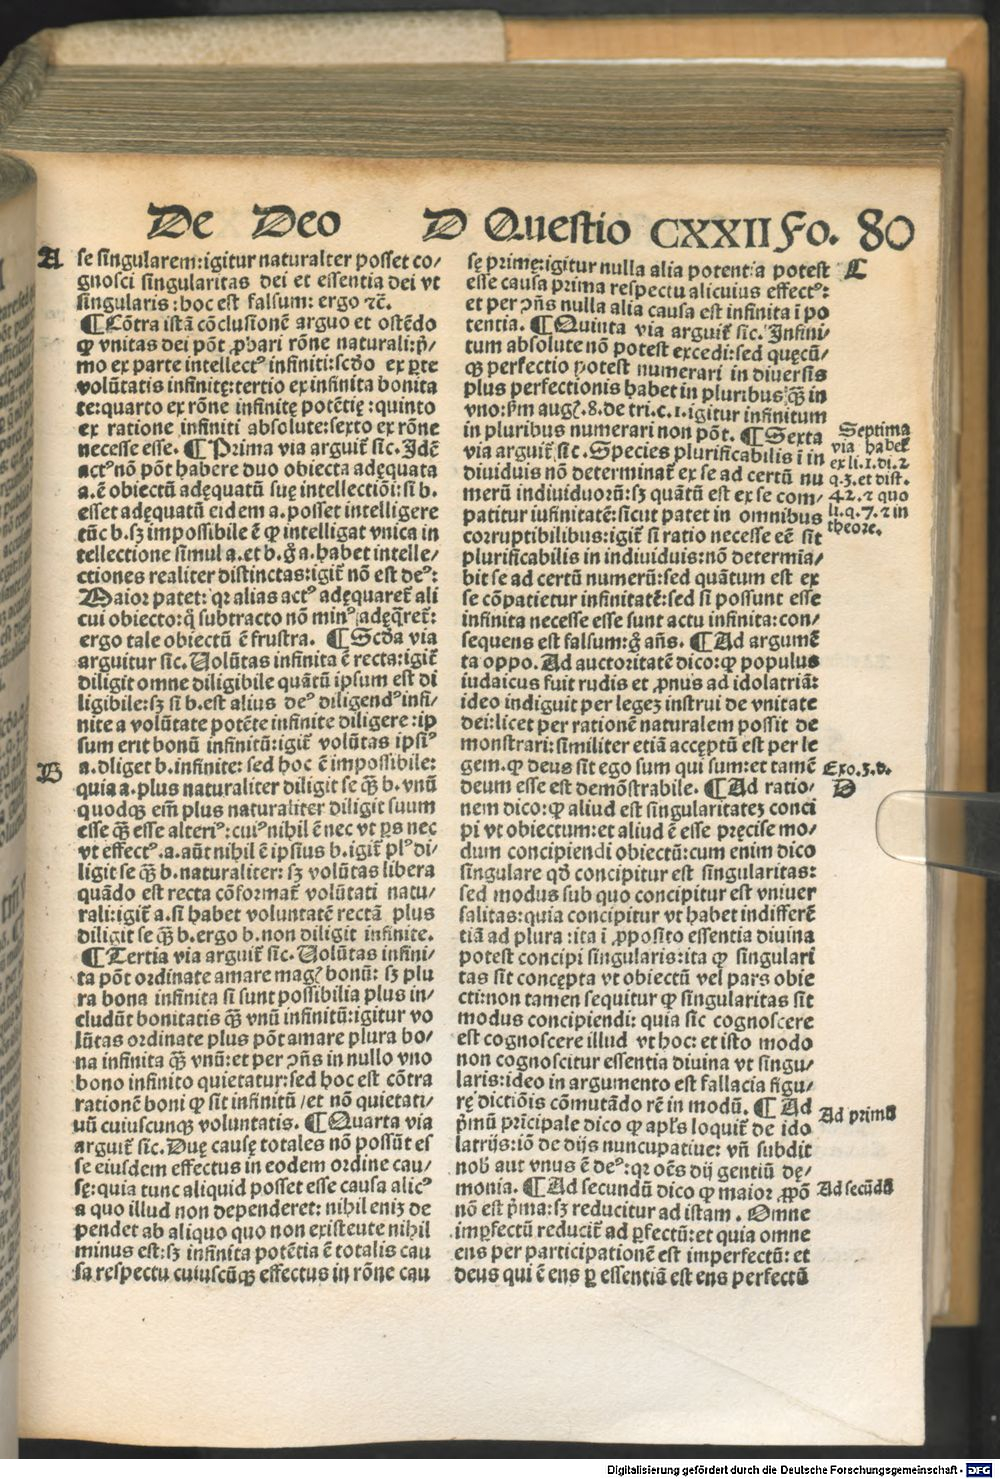 De Deo D Questio CXXII Fo. 80
A se singularem:igitur naturaliter posset co/
gnosci singularitas dei et essentia dei vt
singularis:hoc est falsum: ergo ⁊c̃.
¶Cõtra istã cõclusionẽ arguo et ostẽdo
ꝙ vnitas dei põt ꝓbari rõne naturali:p̃/
mo ex parte intellectꝰ infiniti:scd̃o ex ꝑte
volũtatis infinitę:tertio ex infinita bonita
te:quarto ex rõne infinitę potẽtię:quinto
ex ratione infiniti absolute:sexto ex rõne
necesse esse. ¶Prima via arguit̃ sic.Idẽ
actꝰ nõ põt habere duo obiecta adęquata
a.ẽ obiectũ adęquatũ suę intellectiõi:si b.
esset adęquatũ eidem a.posset intelligere
tũc b.sꝫ impossibile ẽ ꝙ intelligat vnica in
tellectione simul a.et b.g̃ a.habet intelle/
ctiones realiter distinctas:igit̃ nõ est deꝰ:
Maior patet: qr alias actꝰ adęquaret̃ ali
cui obiecto:q̃ subtracto nõ minꝰ adęq̃ret̃:
ergo tale obiectũ ẽ frustra. ¶Scd̃a via
arguitur sic.Volũtas infinita ẽ recta:igit̃
diligit omne diligibile quãtũ ipsum est di
ligibile:sꝫ si b.est alius deꝰ diligendꝰ infi/
nite a volũtate potẽte infinite diligere:ip
sum erit bonũ infinitũ:igit̃ volũtas ipsiꝰ
B a.dliget b.infinite: sed hoc ẽ impossibile:
quia a.plus naturaliter diligit se q̃ʒ b.vnũ
quodqꝫ em̃ plus naturaliter diligit suum
esse q̃ʒ esse alteriꝰ:cuiꝰ nihil ẽ nec vt ꝑs nec
vt effectꝰ.a.aũt nihil ẽ ipsius b.igit̃ plꝰ di/
ligit se q̃ʒ b.naturaliter: sꝫ volũtas libera
quãdo est recta cõformat̃ volũtati natu/
rali:igit̃ a.si habet voluntatẽ rectã plus
diligit se q̃ʒ b.ergo b.non diligit infinite.
¶Tertia via arguit̃ sic.Volũtas infini/
ta põt ordinate amare magꝭ bonũ: sꝫ plu
ra bona infinita si sunt possibilia plus in/
cludũt bonitatis q̃ʒ vnũ infinitũ:igitur vo
lũtas ordinate plus põt amare plura bo/
na infinita q̃ʒ vnũ:et per ↄ̃ns in nullo vno
bono infinito quietatur:sed hoc est cõtra
rationẽ boni ꝙ sit infinitũ/et nõ quietati/
uũ cuiuscunqꝫ voluntatis. ¶Quarta via
arguit̃ sic.Duę causę totales nõ possũt es
se eiusdem effectus in eodem ordine cau/
sę:quia tunc aliquid posset esse causa alicꝰ
a quo illud non dependeret: nihil eniꝫ de
pendet ab aliquo quo non existeute nihil
minus est:sꝫ infinita potẽtia ẽ totalis cau
sa respectu cuiuscũqꝫ effectus in rõne cau
sę primę:igitur nulla alia potentia potest C
esse causa prima respectu alicuius effectꝰ:
et per ↄ̃ns nulla alia causa est infinita ĩ po
tentia. ¶Quinta via arguit̃ sic. Infini/
tum absolute nõ potest excedi:sed quęcũ/
qꝫ perfectio potest numerari in diuersis
plus perfectionis habet in pluribus q̃ʒ in
vno:ẜm augꝭ.8.de tri.c.1.igitur infinitum
in pluribus numerari non põt. ¶Sexta
via arguit̃ sic.Species plurificabilis ĩ in
diuiduis nõ determinat̃ ex se ad certũ nu
merũ indiuiduorũ:sꝫ quãtũ est ex se com/
patitur iufinitatẽ:sicut patet in omnibus
corruptibilibus:igit̃ si ratio necesse eẽ sit
plurificabilis in indiuiduis:nõ determĩa/
bit se ad certũ numerũ:sed quãtum est ex
se cõpatietur infinitatẽ:sed si possunt esse
infinita necesse esse sunt actu infinita:con/
sequens est falsum:g̃ añs. ¶Ad argumẽ
ta oppo.Ad auctoritatẽ dico:ꝙ populus
iudaicus fuit rudis et ꝓnus ad idolatriã:
ideo indiguit per legeꝫ instrui de vnitate
dei:licet per rationẽ naturalem possit de
monstrari:similiter etiã accęptũ est per le
gem.ꝙ deus sit ego sum qui sum:et tamẽ
deum esse est demõstrabile. ¶Ad ratio/
nem dico:ꝙ aliud est singularitateꝫ conci
pi vt obiectum:et aliud ẽ esse pręcise mo/
dum concipiendi obiectũ:cum enim dico
singulare qd̃ concipitur est singularitas:
sed modus sub quo concipitur est vniuer
salitas:quia concipitur vt habet indifferẽ
tiã ad plura:ita ĩ ꝓposito essentia diuina
potest concipi singularis:ita ꝙ singulari
tas sit concępta vt obiectũ vel pars obie
cti:non tamen sequitur ꝙ singularitas sit
modus concipiendi: quia sic cognoscere
est cognoscere illud vt hoc: et isto modo
non cognoscitur essentia diuina vt singu/
laris:ideo in argumento est fallacia figu/
rę dictiõis cõmutãdo rẽ in modũ. ¶Ad
p̃mũ prĩcipale dico ꝙ apl̃s loquit̃ de ido
latrijs:iõ de dijs nuncupatiue: vñ subdit
nob̃ aut vnus ẽ deꝰ:qr oẽs dij gentiũ dę/
monia. ¶Ad secundũ dico ꝙ maior ꝓpõ
nõ est p̃ma:sꝫ reducitur ad istam. Omne
imꝑfectũ reducit̃ ad ꝑfectũ:et quia omne
ens per participationẽ est imperfectũ: et
deus qui ẽ ens ꝑ essentiã est ens perfectũ
Septima
via habet̃
ex li.1.di.2
q.3.et dist.
42.⁊ quo
li.q.7.⁊ in
theore.
Exo.3.d.
D
Ad primũ
Ad secũdũ
Digitalisierung gefördert durch die Deutsche Forschungsgemeinschaft - DFG